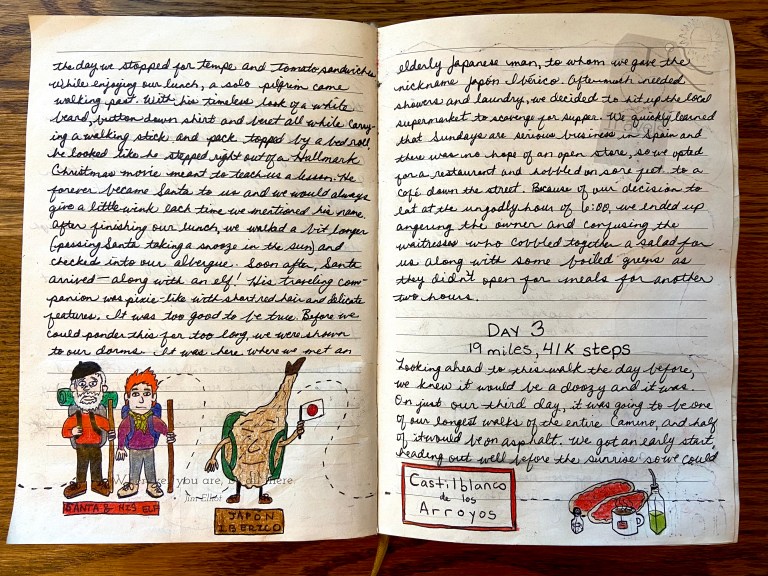 the day we stopped for tempe and tomato sandwiches.
While enjoying our lunch, a solo pilgrim came
walking past. With his timeless look of a white
beard, button down shirt and beret all while carry-
ing a walking stick and pack topped by a bed roll,
he looked like he stepped right out of a Hallmark
Christmas movie meant to teach us a lesson. He
forever became Santa to us and we would always
give a little wink each time we mentioned his name.
After finishing our lunch, we walked a bit longer
(passing Santa taking a snooze in the sun) and
checked into our albergue. Soon after, Santa
arrived—along with an elf! His traveling com-
panion was pixie-like with short red hair and delicate
features. It was too good to be true. Before we
could ponder this for too long, we were shown
to our dorms. It was here where we met an
Wherever you are, be all there
Jim Elliot
SANTA & HIS ELF
JAPÓN
IBERICO
elderly Japanese man, to whom we gave the
nickname Japón Ibérico. After much needed
showers and laundry, we decided to hit up the local
supermarket to scavenge for supper. We quickly learned
that Sundays are serious business in Spain and
there was no hope of an open store, so we opted
for a restaurant and hobbled on sore feet to a
café down the street. Because of our decision to
eat at the ungodly hour of 6:00, we ended up
angering the owner and confusing the
waitresses who cobbled together a salad for
us along with some boiled greens as
they didn't open for meals for another
two hours.
DAY 3
19 miles, 41K steps
Looking ahead to this walk the day before,
we knew it would be a doozy and it was.
On just our third day, it was going to be one
of our longest walks of the entire Camino, and half
of it would be on asphalt. We got an early start,
heading out well before the sunrise so we could
Castilblanco
de los
Arroyos